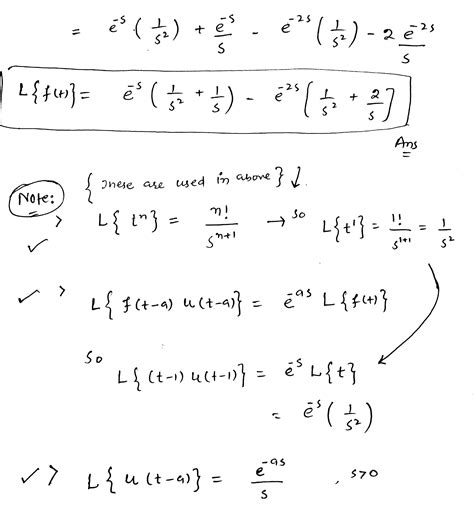 = e^-s (1/s²) + e^-s/s - e^-2s (1/s²) - 2 e^-2s/s
L{f(t)} = e^-s (1/s² + 1/s) - e^-2s [1/s² + 2/s]
Ans
Note: {These are used in above} ↓.
> L{t^n} = n!/s^(n+1) → so L{t^1} = 1!/s^(1+1) = 1/s²
✓
✓ > L{f(t-a) u(t-a)} = e^-as L{f(t)}
So L{(t-1) u(t-1)} = e^-s L{t}
= e^-s (1/s²)
✓ > L{u(t-a)} = e^-as/s , s>0